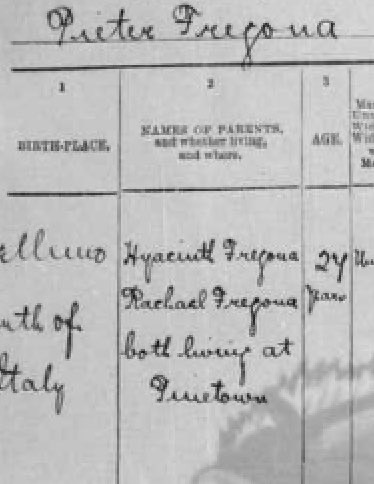 Pieter Fregona
1
2
3
BIRTH-PLACE.
NAMES OF PARENTS,
and whether living,
and where.
AGE.
elluno
uth of
Italy
Hyacinth Fregona
Rachael Fregona
both living at
Pinetown
27
years